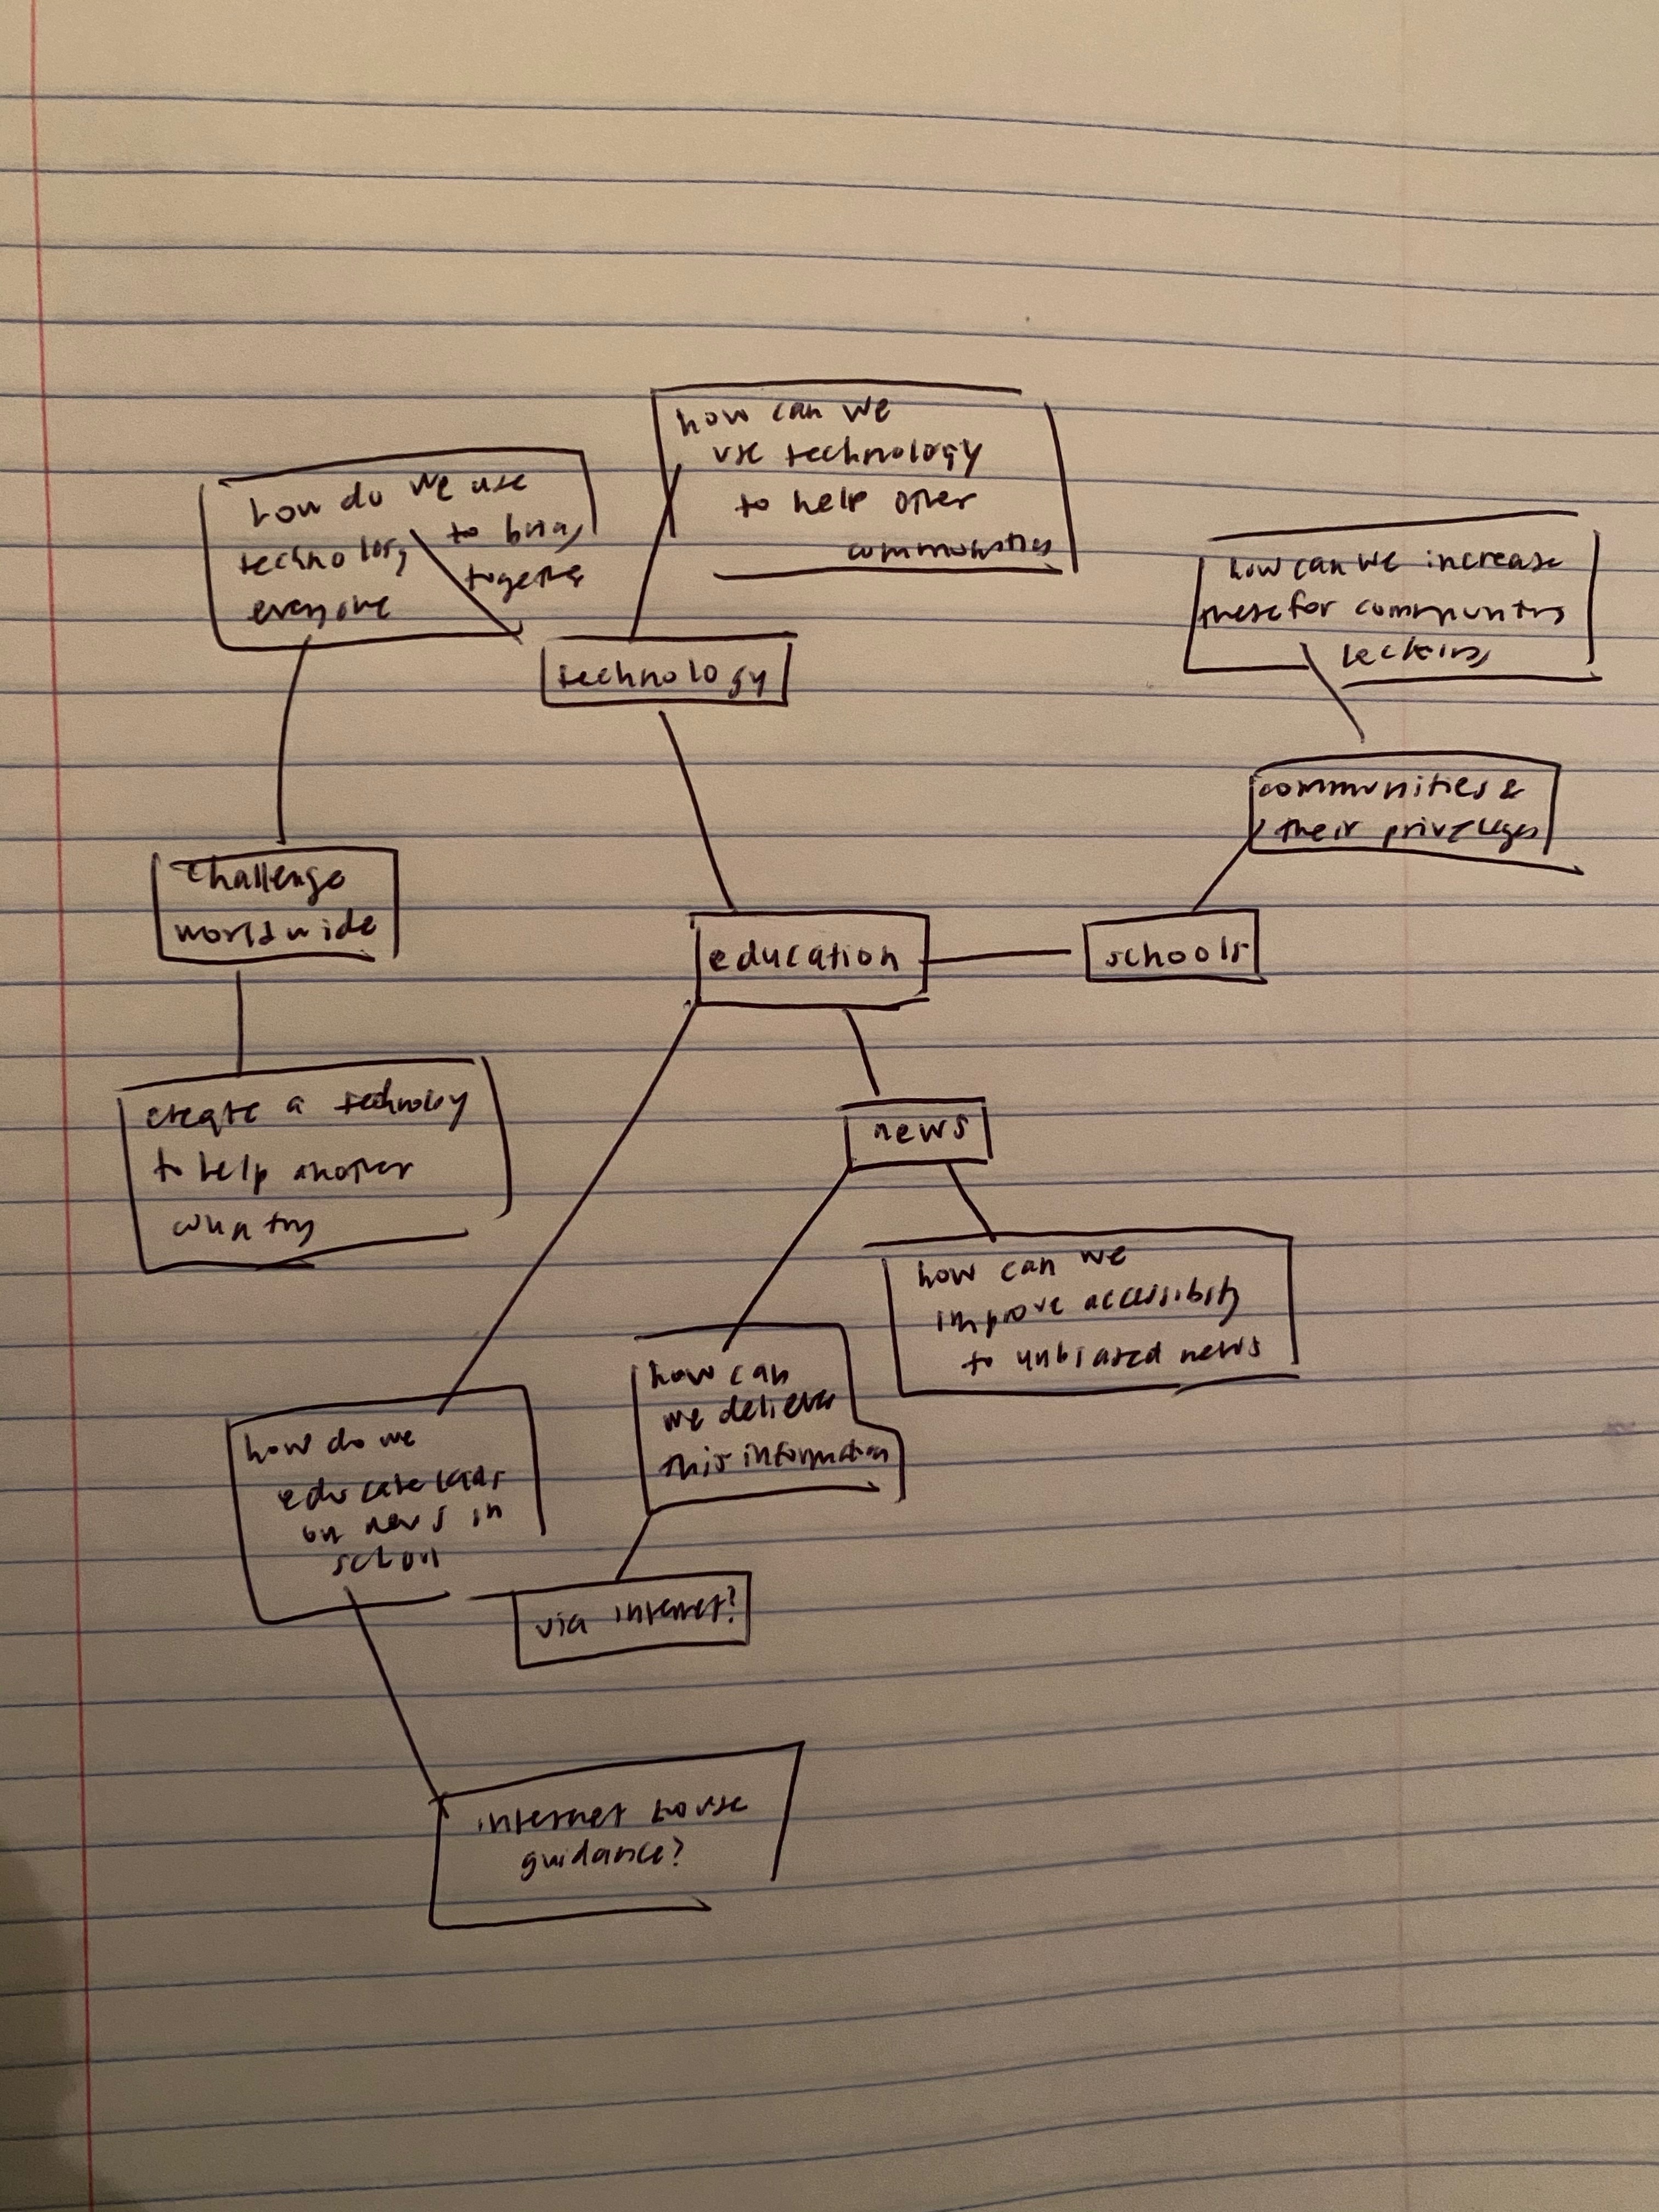 how can we
use technology
to help other
communities
how do we use
technology to bring
together
everyone
how can we increase
these for communities
lacking
technology
communities &
their privileges
challenge
worldwide
education
schools
create a technology
to help another
country
news
how can we
improve accessibility
to unbiased news
how can
we deliever
this information
how do we
educate kids
on news in
school
via internet?
internet
guidance?